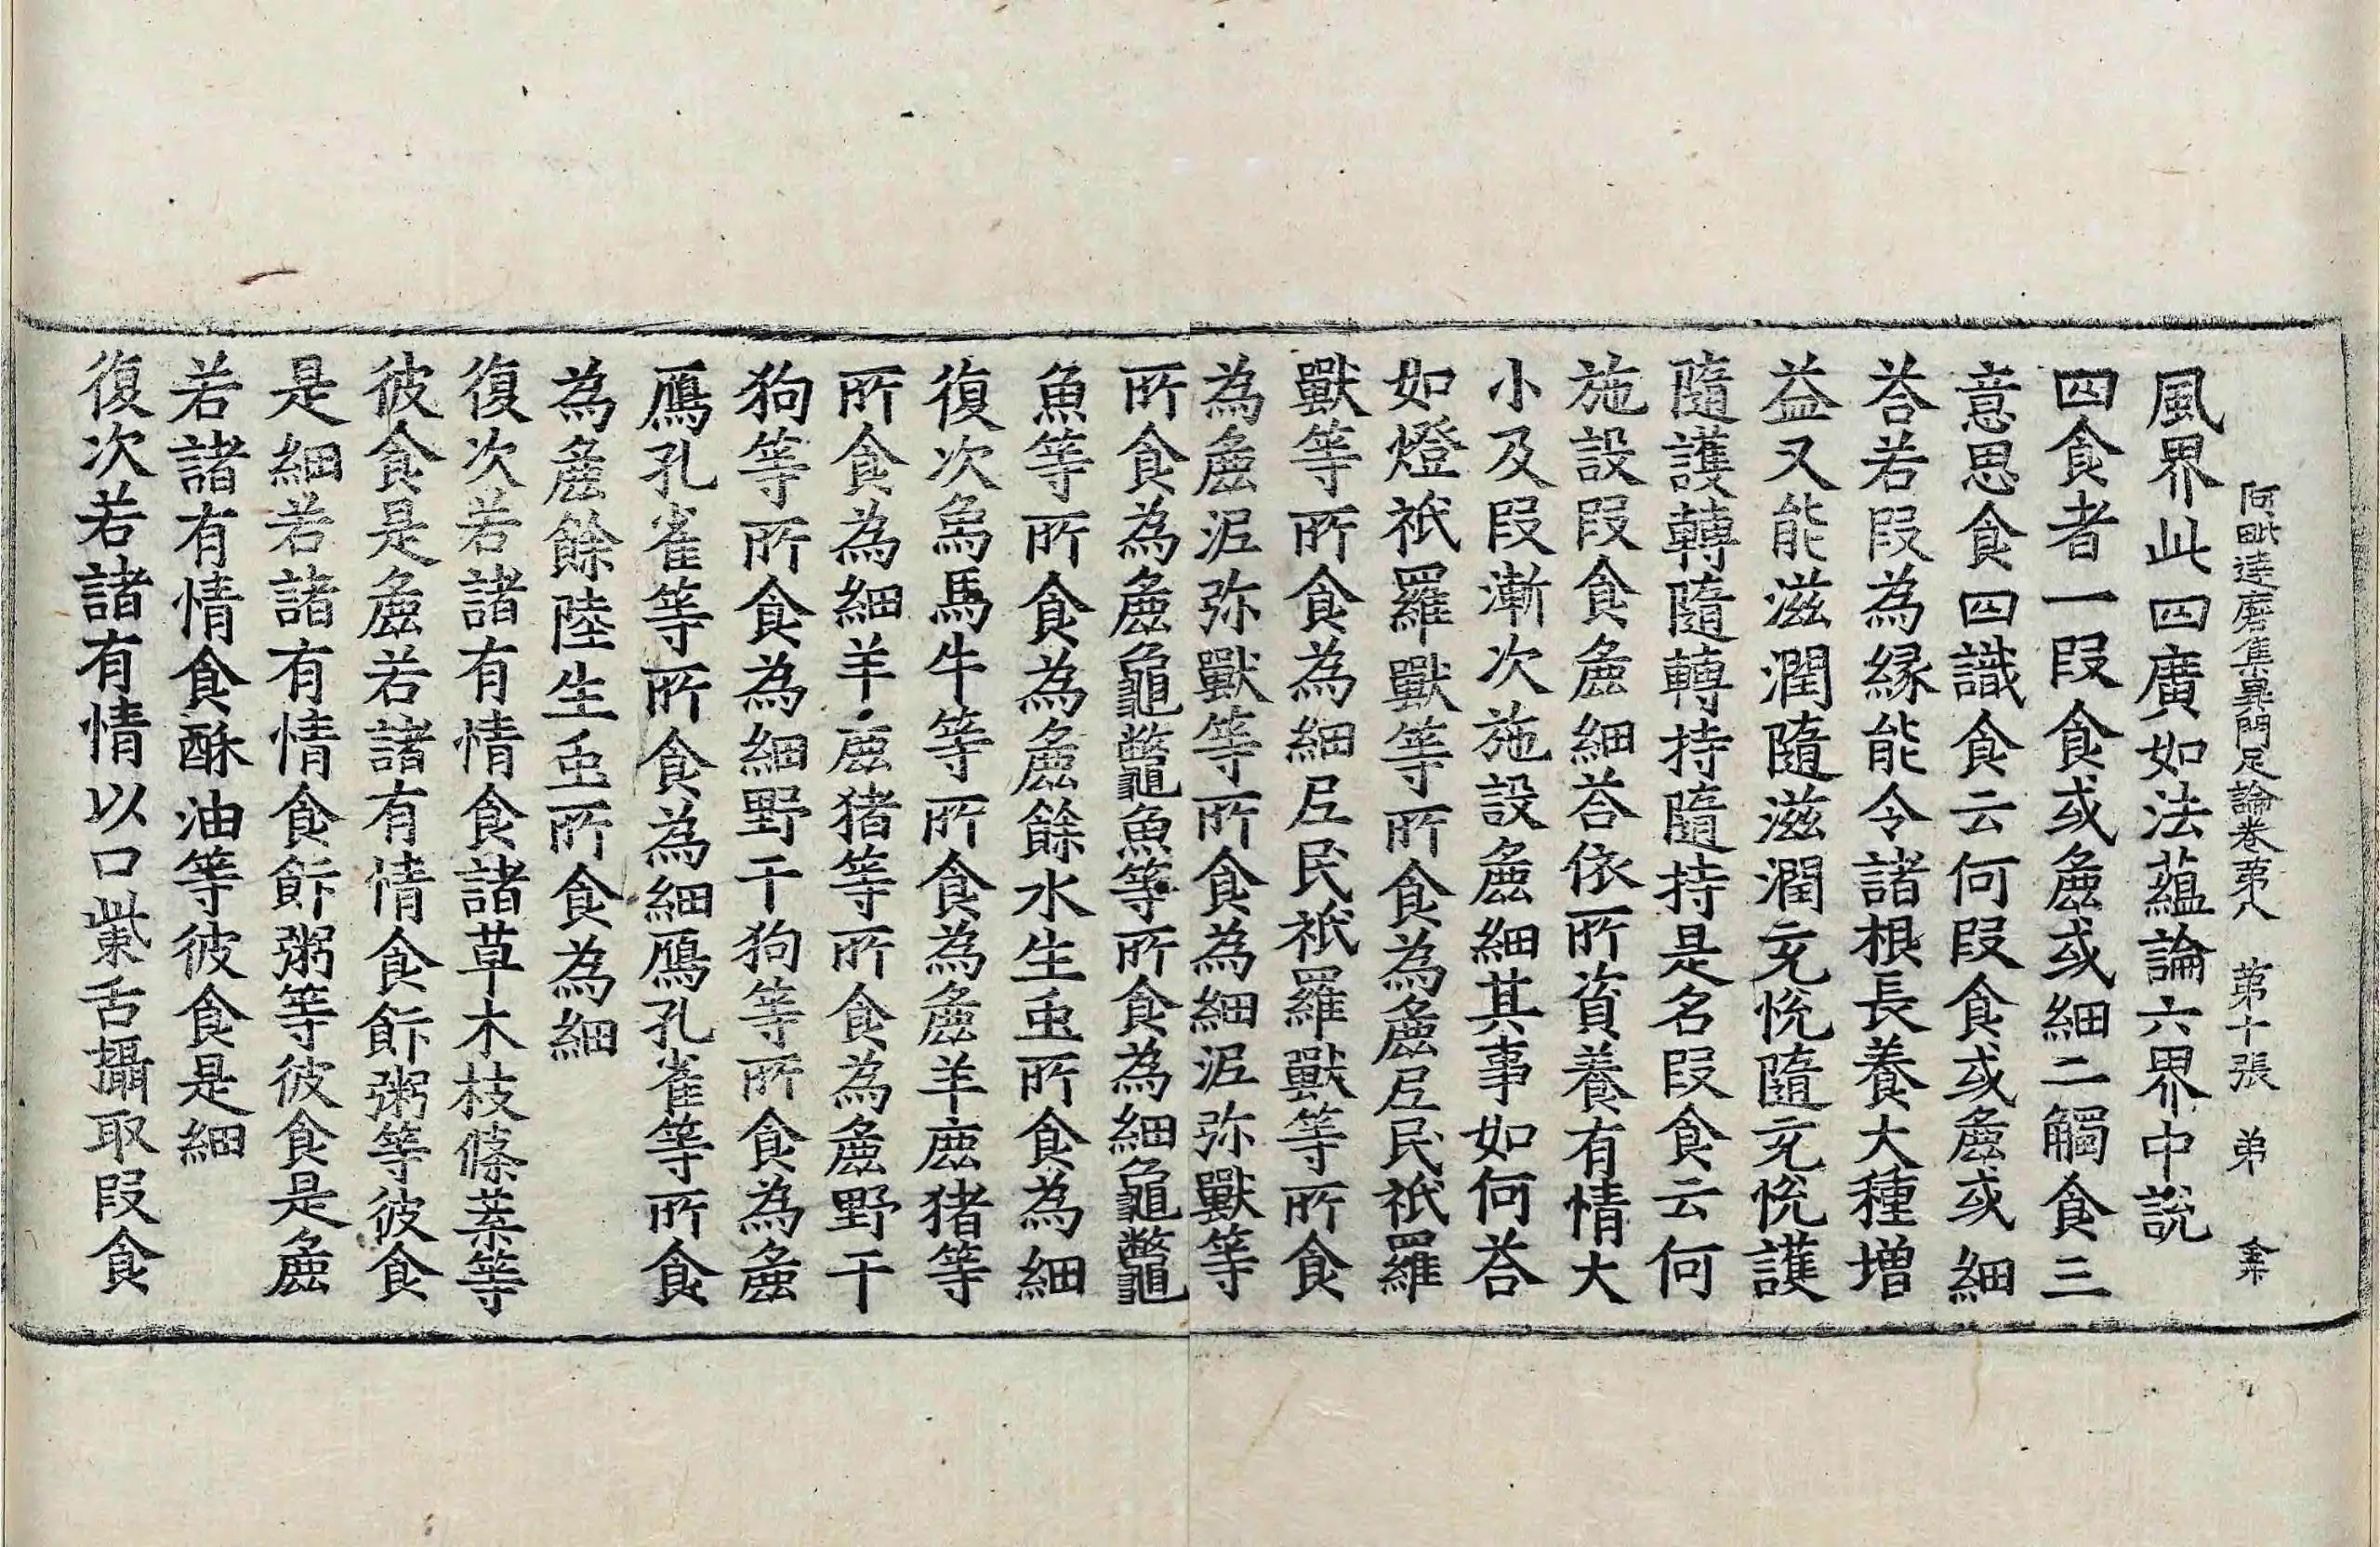 阿毗達磨集異門足論卷第八　第十張　弟　
風界此四廣如法蘊論六界中說
四食者一段食或麁或細二觸食三
意思食四識食云何段食或麁或細
荅若段為緣能令諸根長養大種增
益又能滋潤隨滋潤充悅隨充悅護
隨護轉隨轉持隨持是名段食云何
施設段食麁細荅依所資養有情大
小及段漸次施設麁細其事如何荅
如燈祇羅獸等所食為麁㞾民祇羅
獸等所食為細㞾民祇羅獸等所食
為麁泥弥獸等所食為細泥弥獸等
所食為麁龜鼈魚等所食為細龜鼈
魚等所食為麁餘水生䖝所食為細
復次烏馬牛等所食為麁羊鹿猪等
所食為細羊鹿猪等所食為麁野干
狗等所食為細野干狗等所食為麁
鴈孔雀等所食為細鴈孔雀等所食
為麁餘陸生䖝所食為細
復次若諸有情食諸草木枝條葉等
彼食是麁若諸有情食飰粥等彼食
是細若諸有情食飰粥等彼食是麁
若諸有情食酥油等彼食是細
復次若諸有情以口㭰舌攝取段食